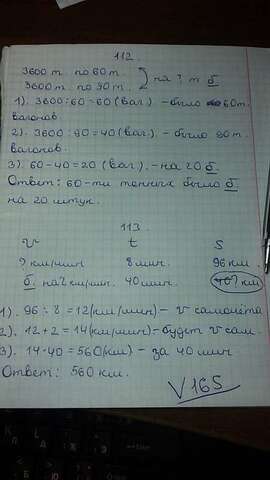 112.
3600 т. по 60 т.
на ? т б
3600 т. по 90 т.
1). 3600:60=60(ваг.) - было 60 т.
вагонов.
2). 3600:90=40(ваг.) - было 90 т.
вагонов.
3). 60-40=20(ваг.) - на 20 б.
Ответ: 60-ти тонних было б
на 20 штук.
113.
v t s
? км/мин 8 мин. 96 км.
б. на 2 км/мин. 40 мин. ? км
1). 96:8=12(км/мин) - v самолёта
2). 12+2=14(км/мин) - будет v сам.
3). 14·40=560(км) - за 40 мин
Ответ: 560 км.
V 165